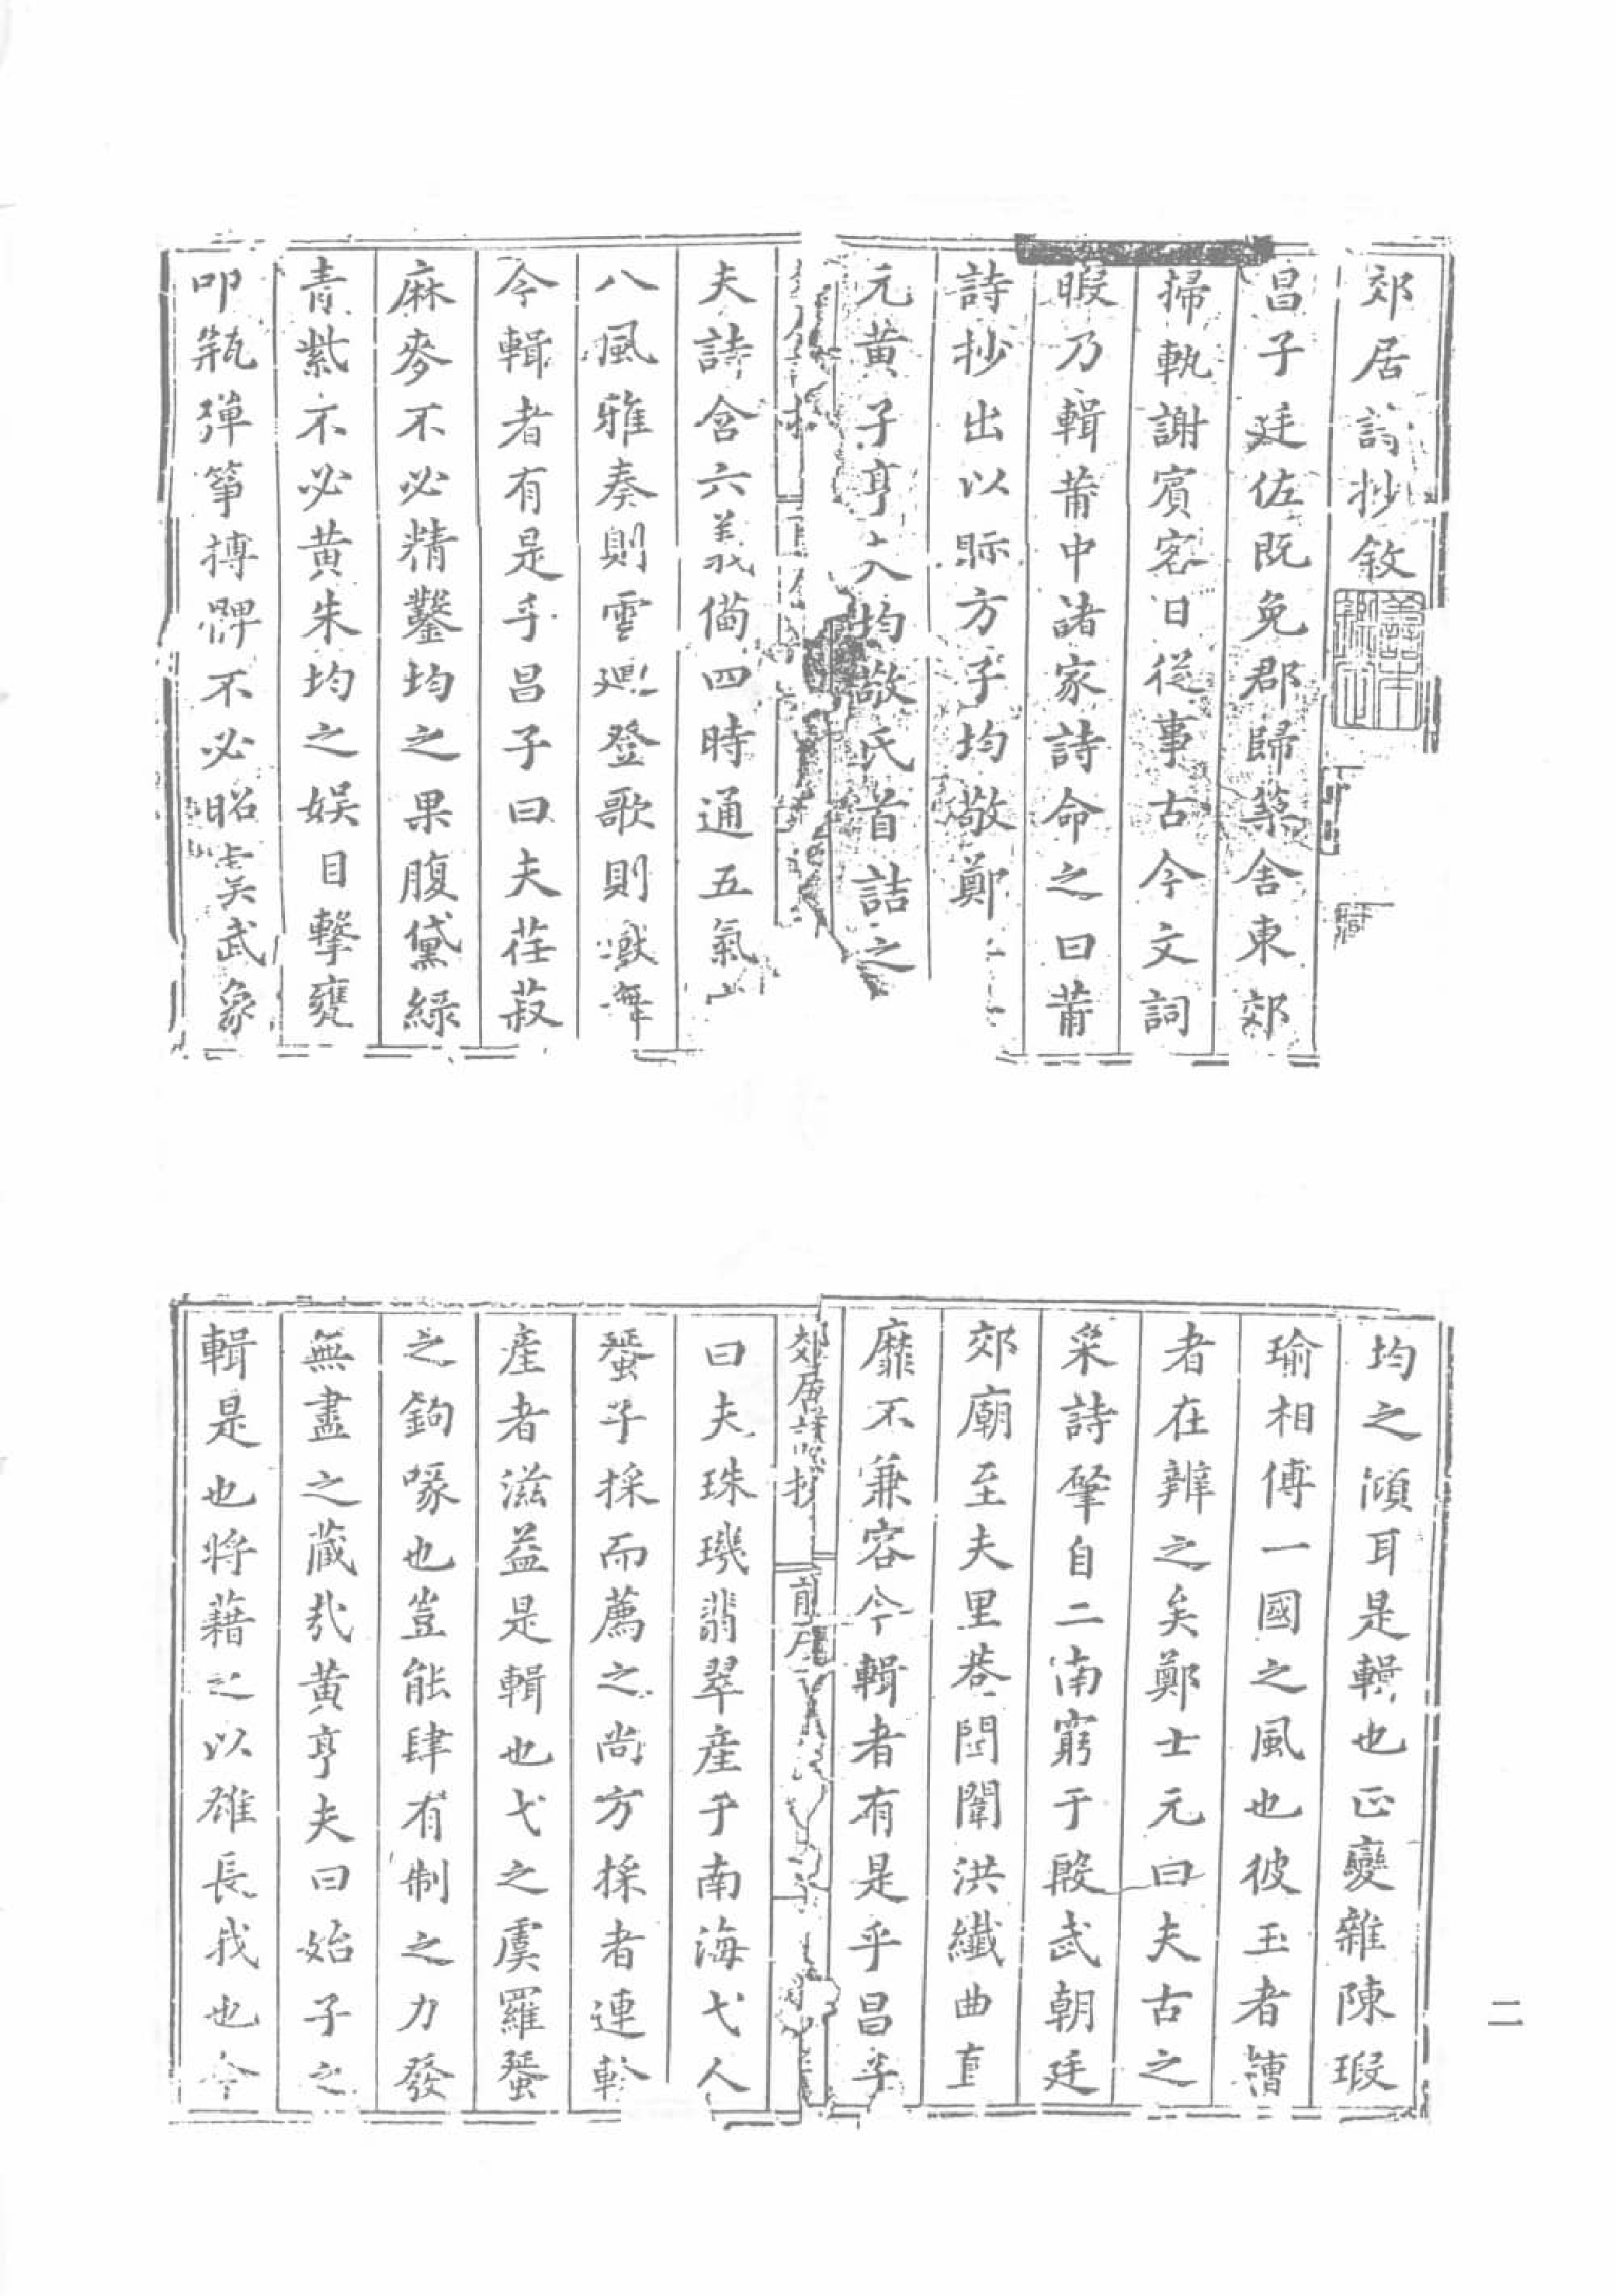 郊居詩抄敘
昌子廷佐既免郡歸築舍東郊
掃軌謝賓客日從事古今文詞
暇乃輯莆中諸家詩命之曰莆
詩抄出以眎方子均敬鄭士
元黃子亨夫均敬氏首詰之曰
夫詩含六義備四時通五氣
八風雅奏則雲興登歌則獸舞
今輯者有是乎昌子曰夫荏菽
麻麥不必精鑿均之果腹黛綠
青紫不必黃朱均之娛目擊甕
叩瓶彈箏搏髀不必昭虞武象
均之傾耳是輯也正變雜陳瑕
瑜相傅一國之風也彼玉者漕
者在辨之矣鄭士元曰夫古之
采詩肇自二南窮于殷武朝廷
郊廟至夫里巷閭闈洪纖曲直
靡不兼容今輯者有是乎昌子
郊居詩抄
曰夫珠璣翡翠產乎南海弋人
蜑子採而薦之尚方採者連軫
產者滋益是輯也弋之虞羅蜑
之鉤喙也豈能肆有制之力發
無盡之藏哉黃亨夫曰始子之
輯是也將藉之以雄長我也今
二